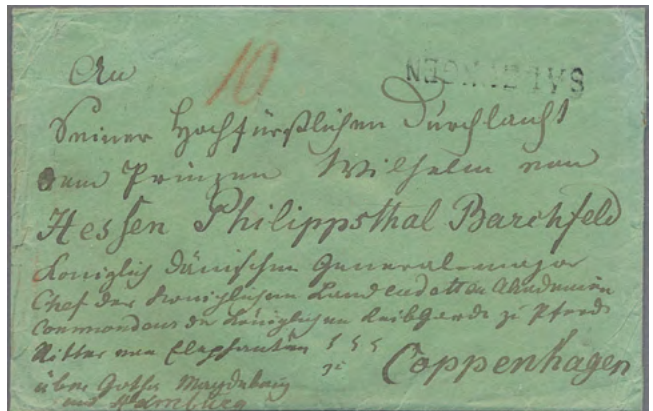 An
10
SALZUNGEN
Seiner Hochfürstlichen Durchlaucht
dem Prinzen Wilhelm von
Hessen Philippsthal Barchfeld
Königlich Dänischen General-major
Chef der Königlichen Landcadetten Akademie
Commandeur der Königlichen Leibgarde zu Pferde
Ritter vom Elephanten
zu Coppenhagen
über Gotha Magdeburg
und Hamburg